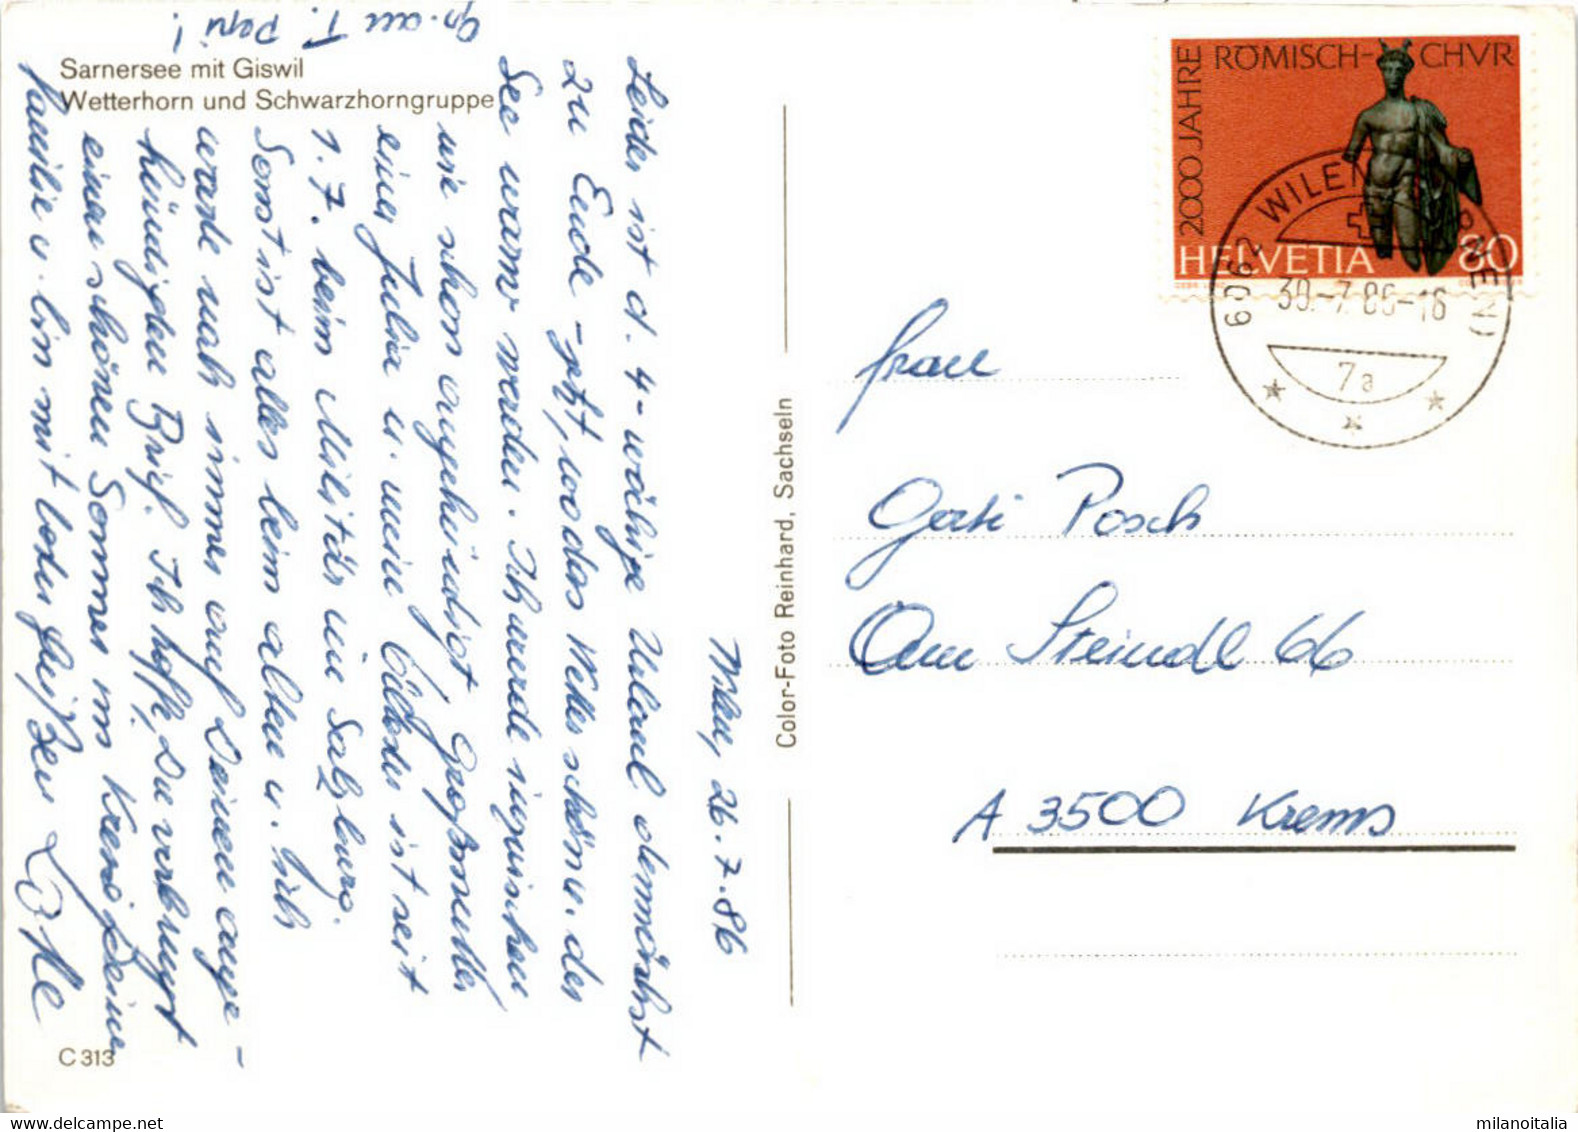 Sarnersee mit Giswil
Wetterhorn und Schwarzhorngruppe
Wilen, 26.7.86
Leider ist d. 4-wöchige Urlaub demnächst
zu Ende - jetzt, wo das Wetter schön u. der
See warm werden. Ich wurde inzwischen
wie schon angekündigt, Großmutter
einer Julia u. mein Ältester ist seit
1.7. beim Militär in Salzburg.
Sonst ist alles beim alten u. ich
warte noch immer auf Deinen ange-
kündigten Brief. Ich hoffe, Du verbringst
einen schönen Sommer in Krems. Deine
Familie u. bin mit lieben Grüßen
Gr. an T. Pepi!
C 313
Color-Foto Reinhard, Sachseln
2000 JAHRE
RÖMISCH-CHVR
HELVETIA 80
6062 WILEN (SARNEN)
30.-7.86-16
7a
Frau
Gerti Posch
Am Steindl 66
A 3500 Krems
milanoitalia